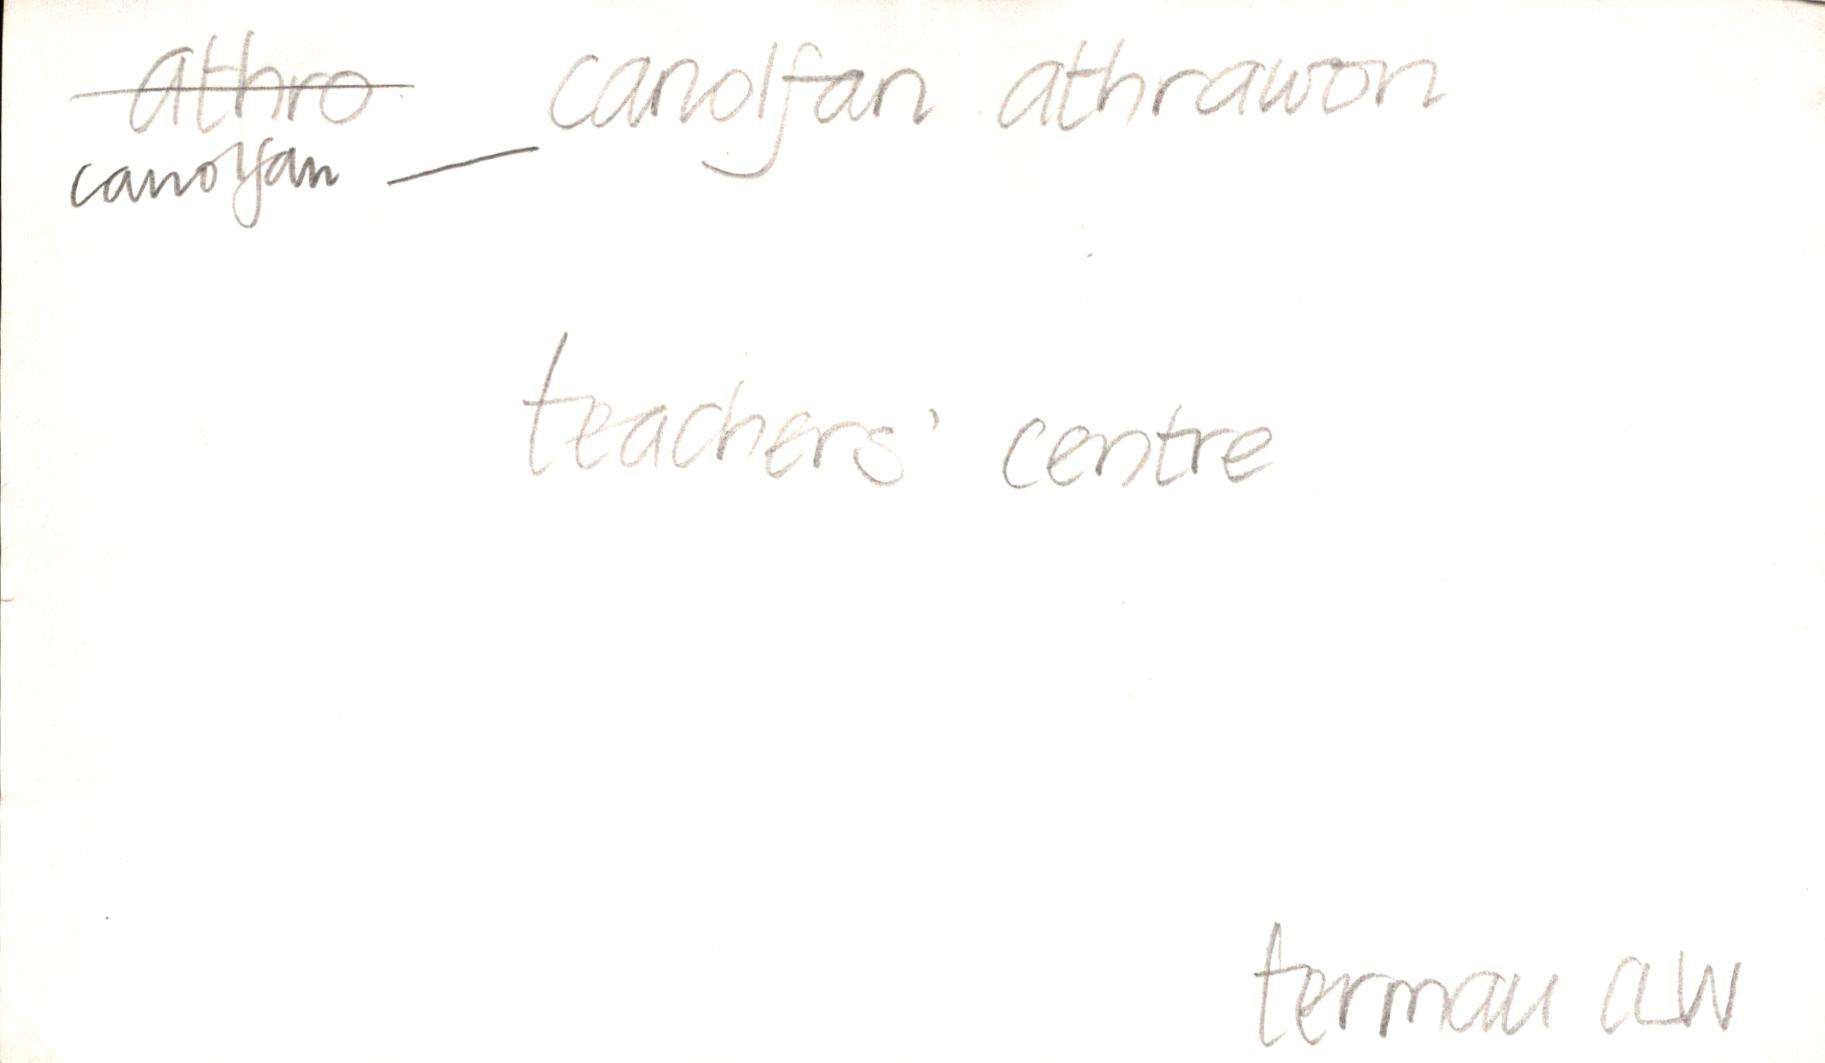 athro canolfan athrawon
canolfan —
teachers' centre
termau AW